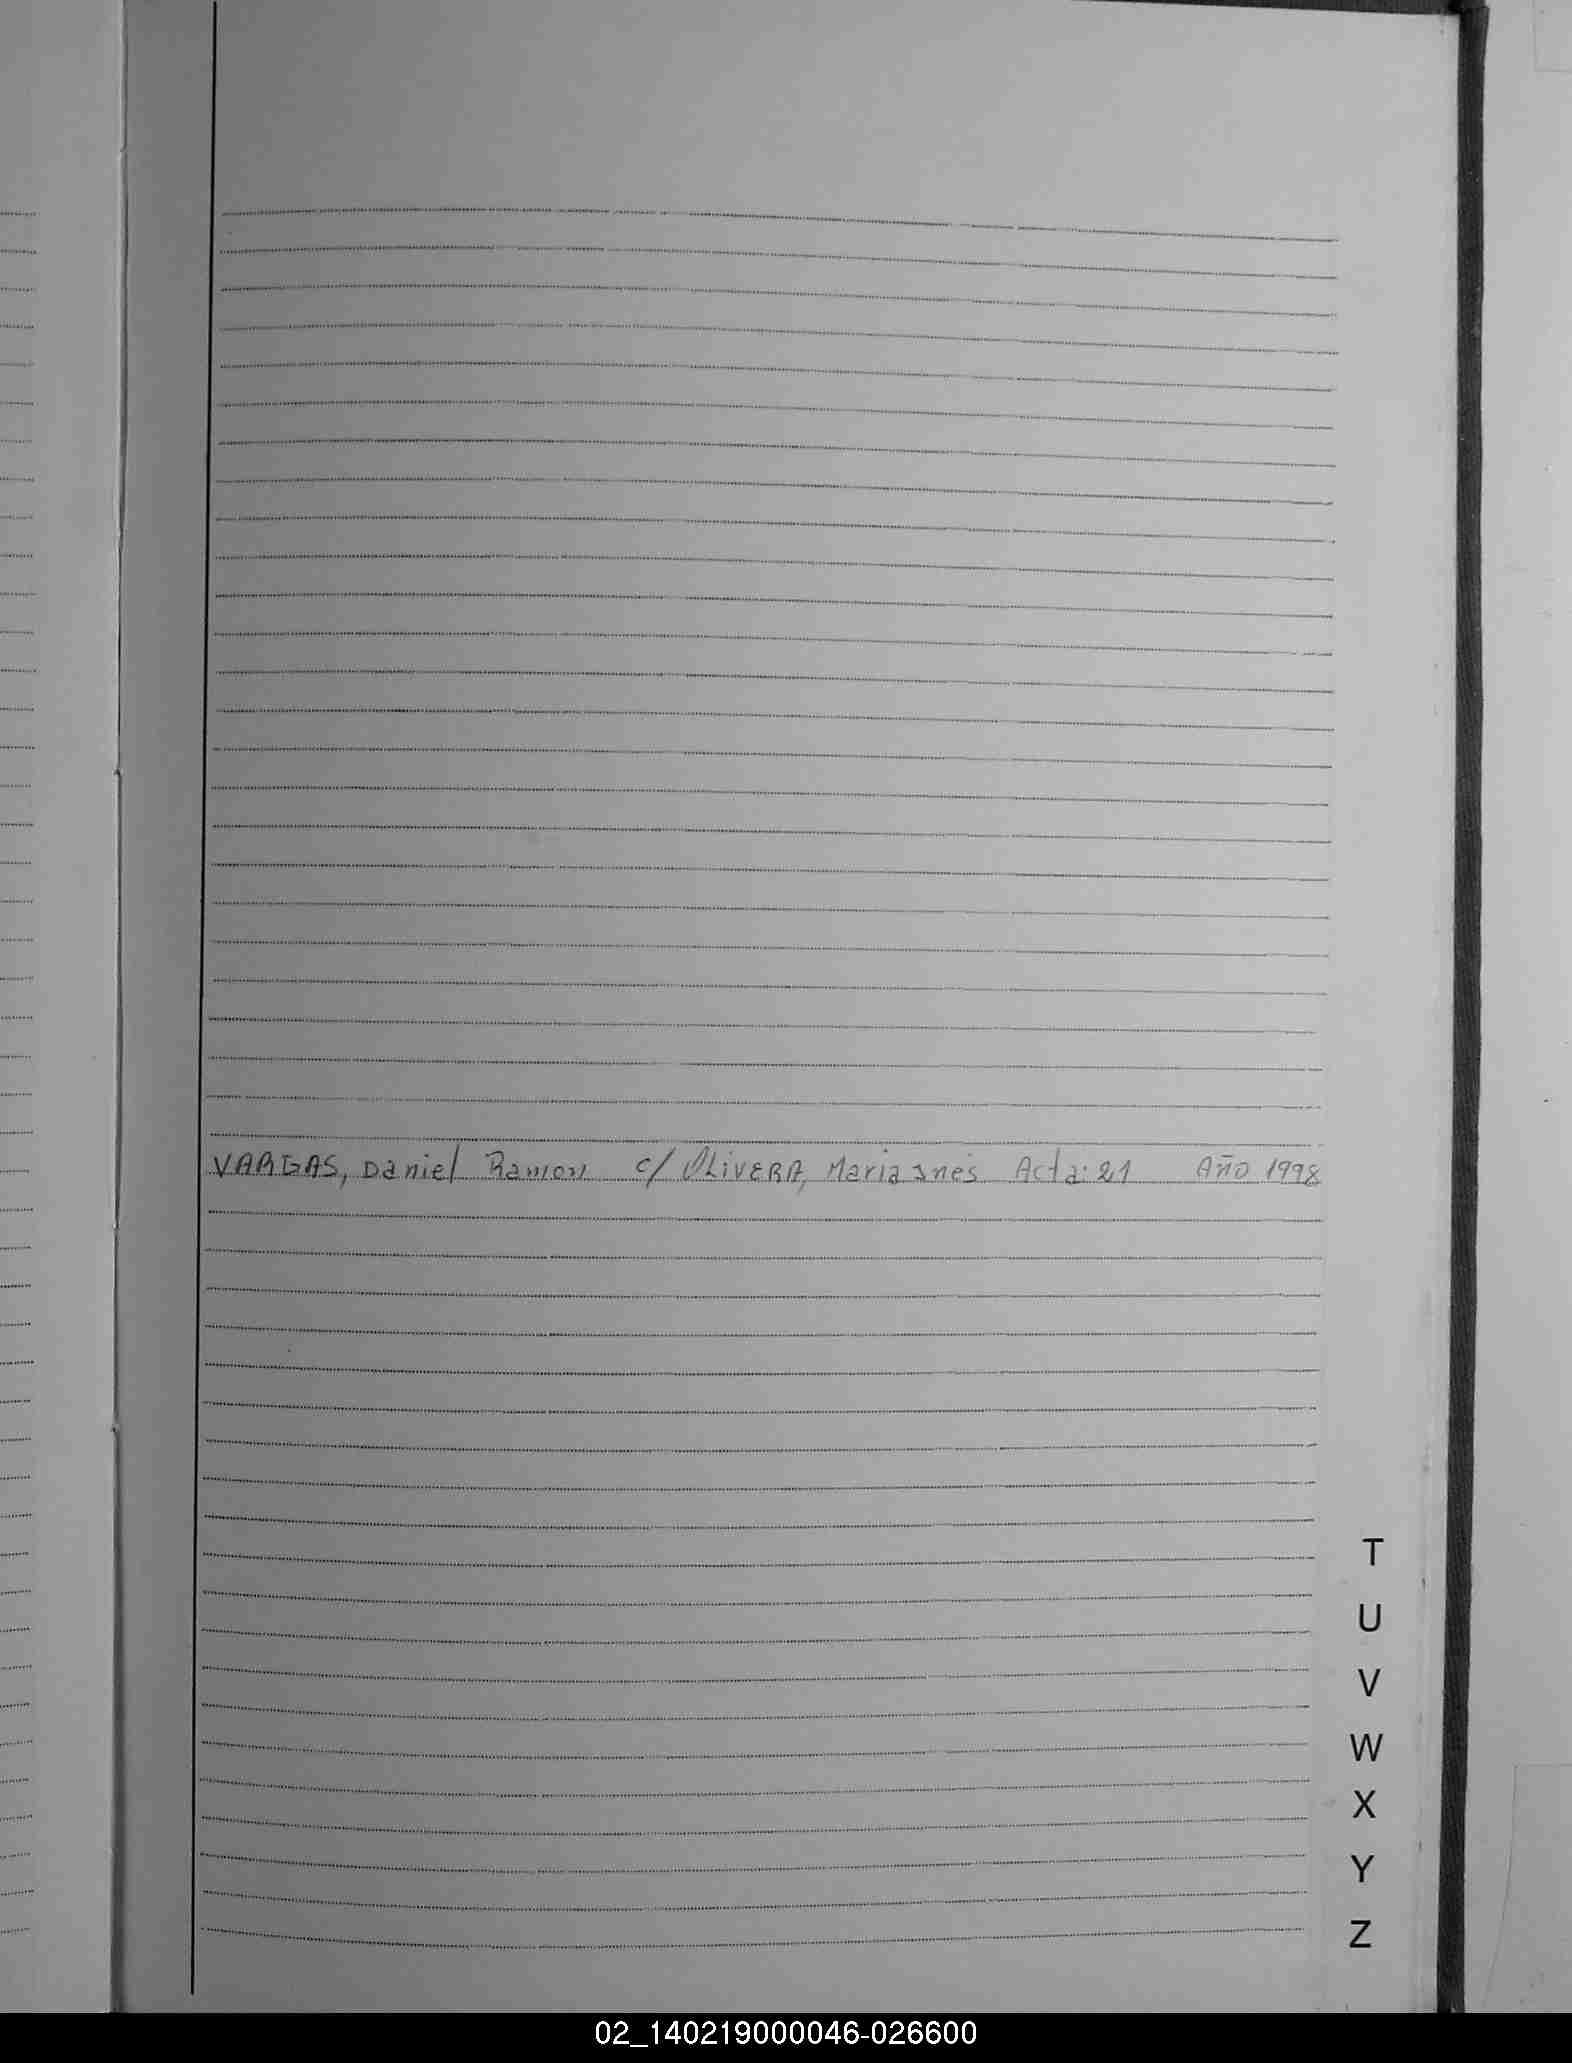 VARGAS, Daniel Ramon c/ OLiVERA, Maria Ines Acta: 21 Año 1998
T
U
V
W
X
Y
Z
02_140219000046-026600